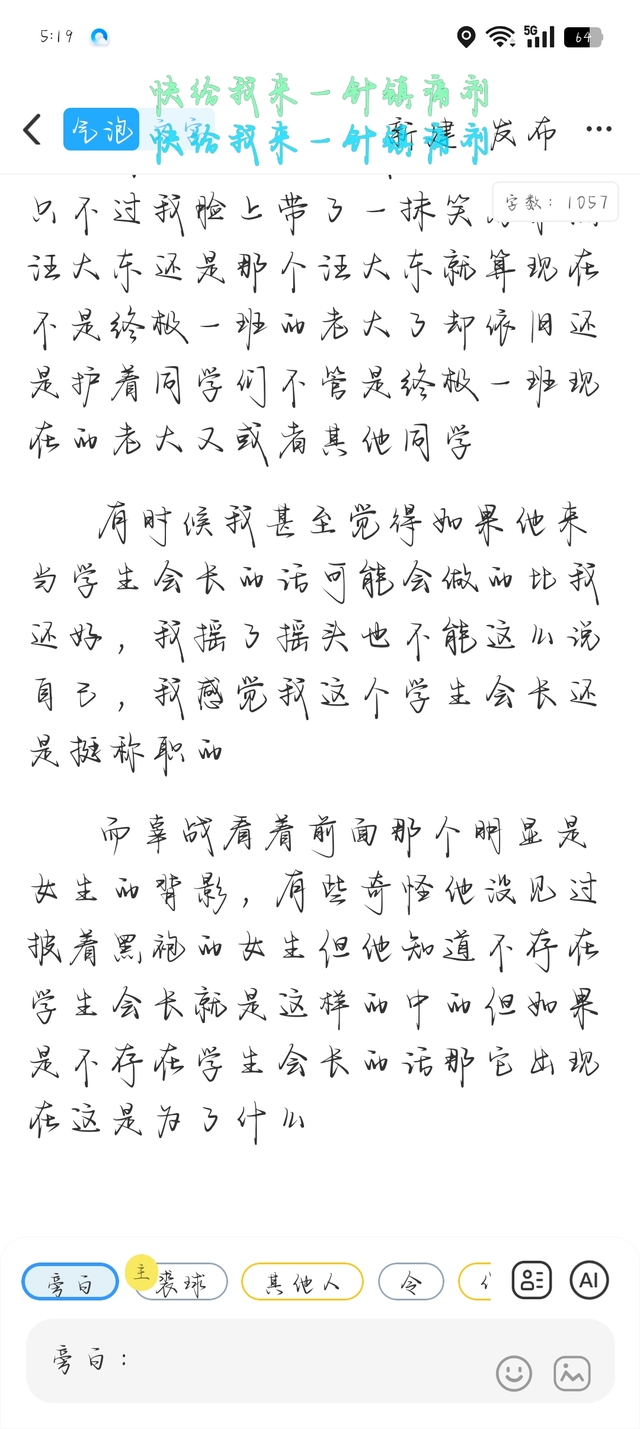 5:19
5G
64
快给我来一针镇痛剂
快给我来一针镇痛剂
气泡
新建 发布
字数：1057
只不过我脸上带了一抹笑
汪大东还是那个汪大东就算现在
不是终极一班的老大了却依旧还
是护着同学们不管是终极一班现
在的老大又或者其他同学
有时候我甚至觉得如果他来
当学生会长的话可能会做的比我
还好，我摇了摇头也不能这么说
自己，我感觉我这个学生会长还
是挺称职的
而辜战看着前面那个明显是
女生的背影，有些奇怪他没见过
披着黑袍的女生但他知道不存在
学生会长就是这样的中的但如果
是不存在学生会长的话那它出现
在这是为了什么
旁白
主
裘球
其他人
令
AI
旁白：